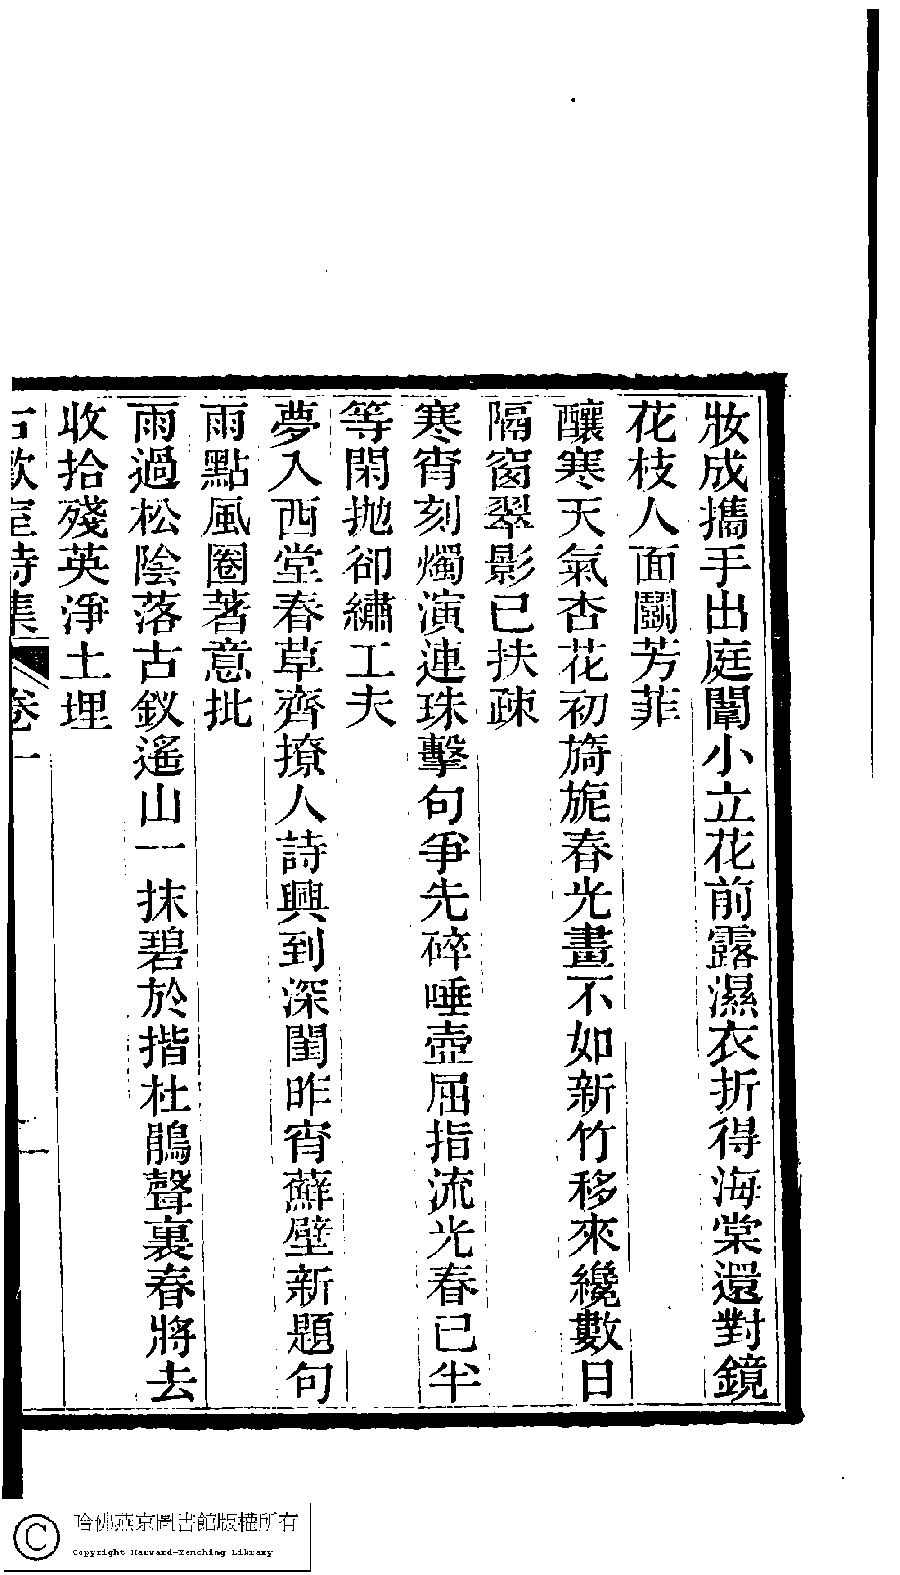 妝成攜手出庭闈小立花前露濕衣折得海棠還對鏡
花枝人面鬬芳菲
釀寒天氣杏花初旖旎春光畫不如新竹移來纔數日
隔窗翠影已扶疎
寒宵刻燭演連珠擊句爭先碎唾壺屈指流光春已半
等閑拋卻繡工夫
夢入西堂春草齊撩人詩興到深閨昨宵蘚壁新題句
雨點風圈著意批
雨過松陰落古釵遙山一抹碧於揩杜鵑聲裏春將去
收拾殘英淨土埋
詩集 卷一
二
哈佛燕京圖書館版權所有
Copyright Harvard-Yenching Library